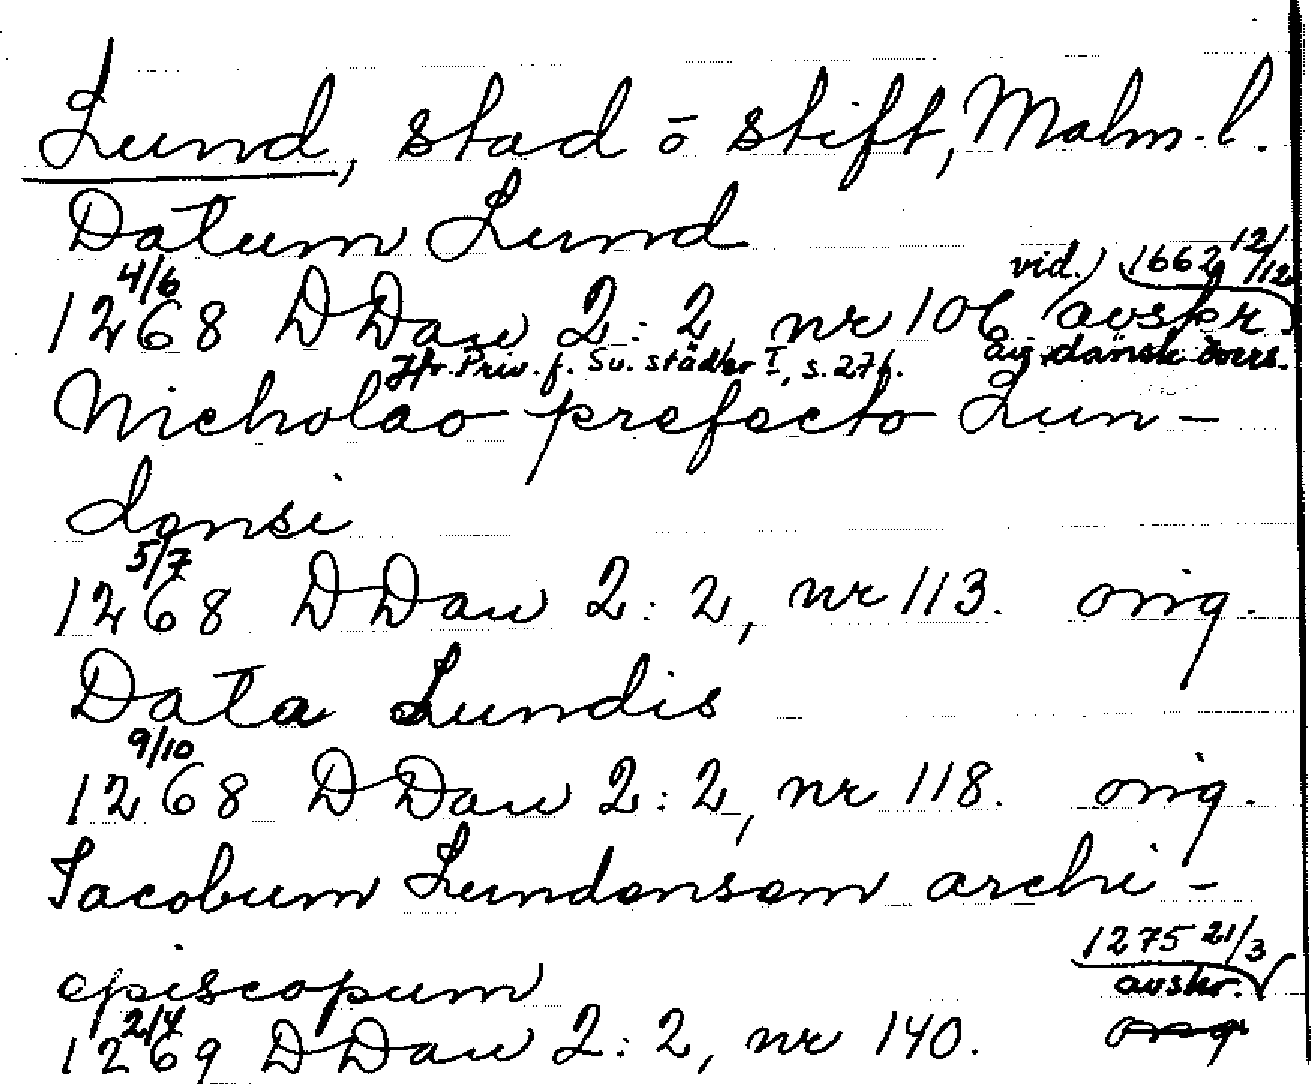 Lund, stad o stift, Malm. l.
Datum Lund
vid. 1662 12/12
1268 4/6 DDan 2:2, nr 106 avskr.
Jfr. Priv. f. Sv. städer I, s. 27 f.
av dansk övers.
Nicholao prefecto Lun-
densi
1268 5/7 DDan 2:2, nr 113. orig.
Data Lundis
1268 9/10 DDan 2:2, nr 118. orig.
Iacobum Lundensem archi-
episcopum
1275 21/3
avskr.
1269 2/4 DDan 2:2, nr 140. orig